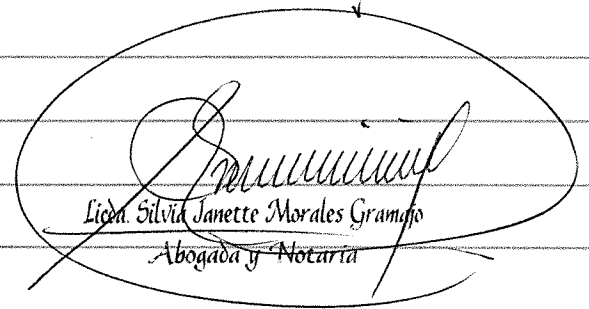 Licda. Silvia Janette Morales Gramajo
Abogada y Notaria